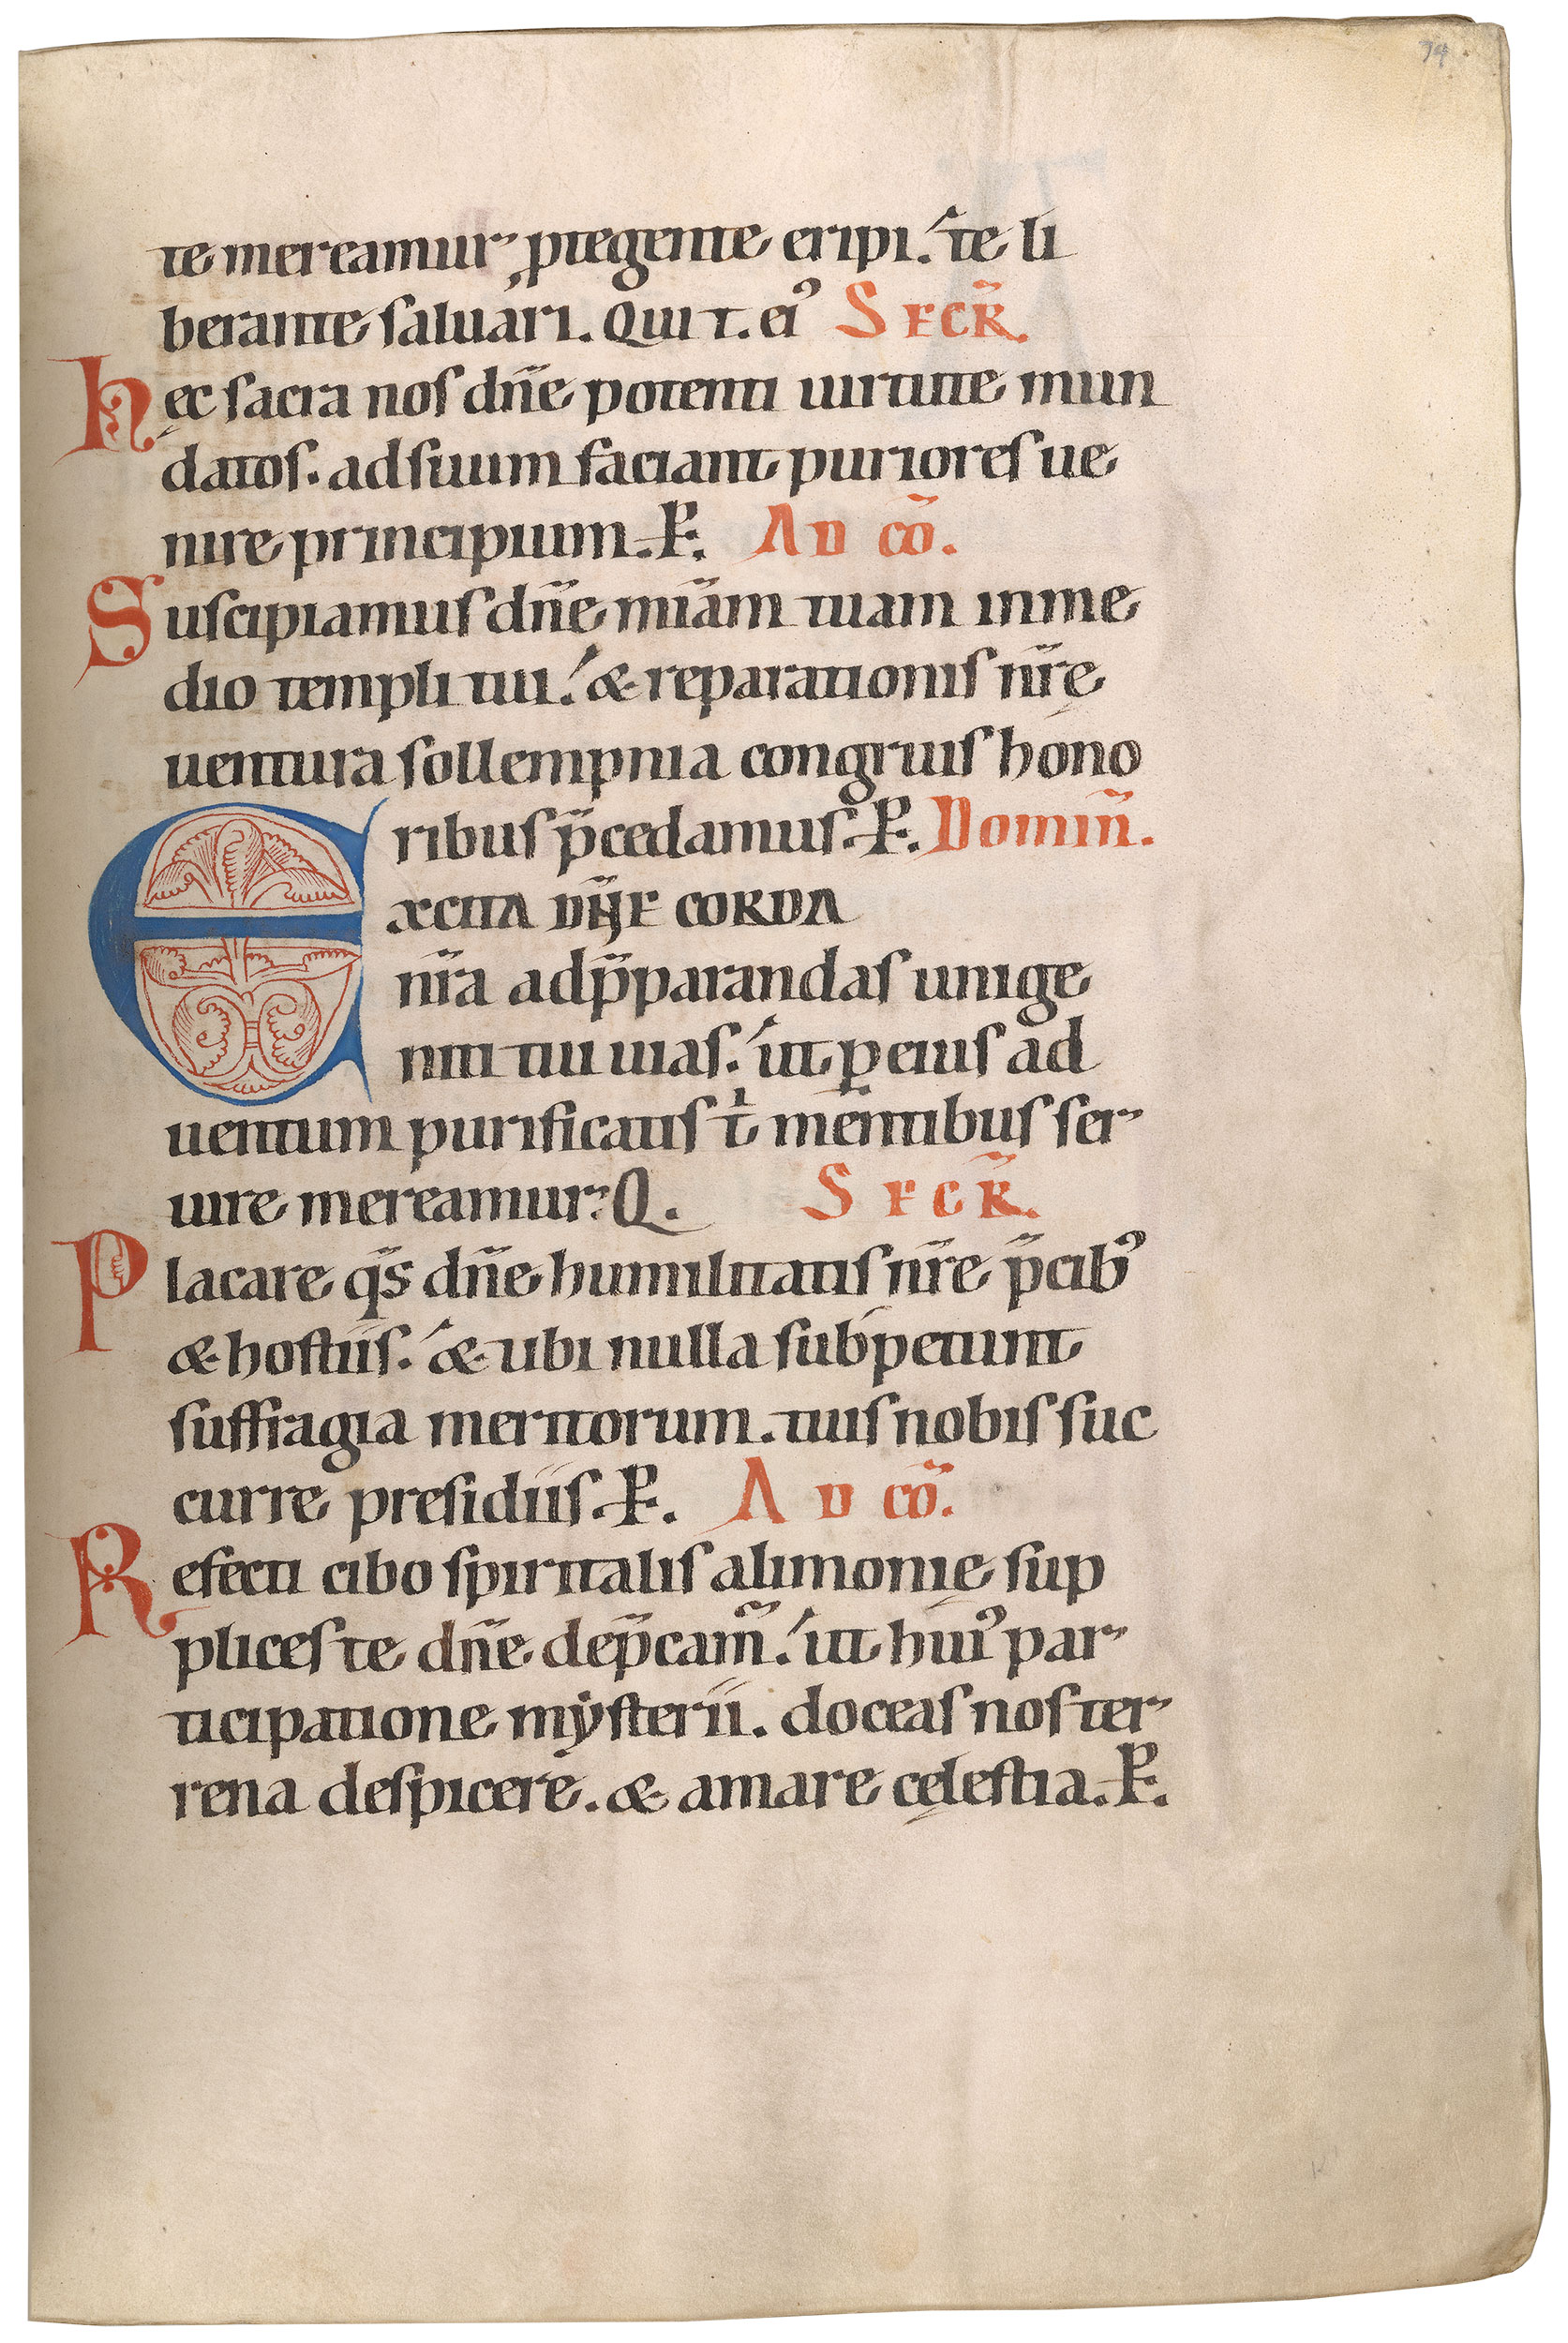 74
te mereamur, ꝓtegente eripi. te li
berante saluári. Qui t. ei᾽ SECR̃.
Hęc sacra nos dñe potenti uirtute mun
datos. ad suum faciant puriores ue
nire principium. P. AD cõ.
Suscipiamus dñe miãm tuam in me
dio templi tui. & reparationis nr̃ę
uentura sollempnia congruis hóno
ribus p̃cedamus. P. Domiñ.
EXCITA DÑE CORDA
nr̃a ad p̃parandas unige
niti tui uias. ut ꝑ eius ad
uentum purificatis tⁱ mentibus ser
uire mereamur. Q. SECR̃.
Placare q̃s dñe humilitatis nr̃e p̃cib᾽
& hostiis. & ubi nulla sub́petunt
suffragia meritorum. tuis nobis suc
curre presidiis. P. AD cõ.
Refecti cibo spiritalis alimonię sup
plices te dñe dep̃cam̃. ut hui᾽ par
ticipatione mẏsterii. doceas nos ter
rena despicere. & amare cęlestia. P.